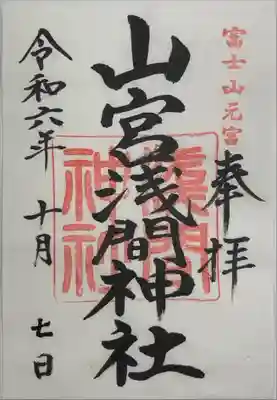 富士山元宮
奉拝
山宮浅間神社
浅間神社
令和六年十月七日